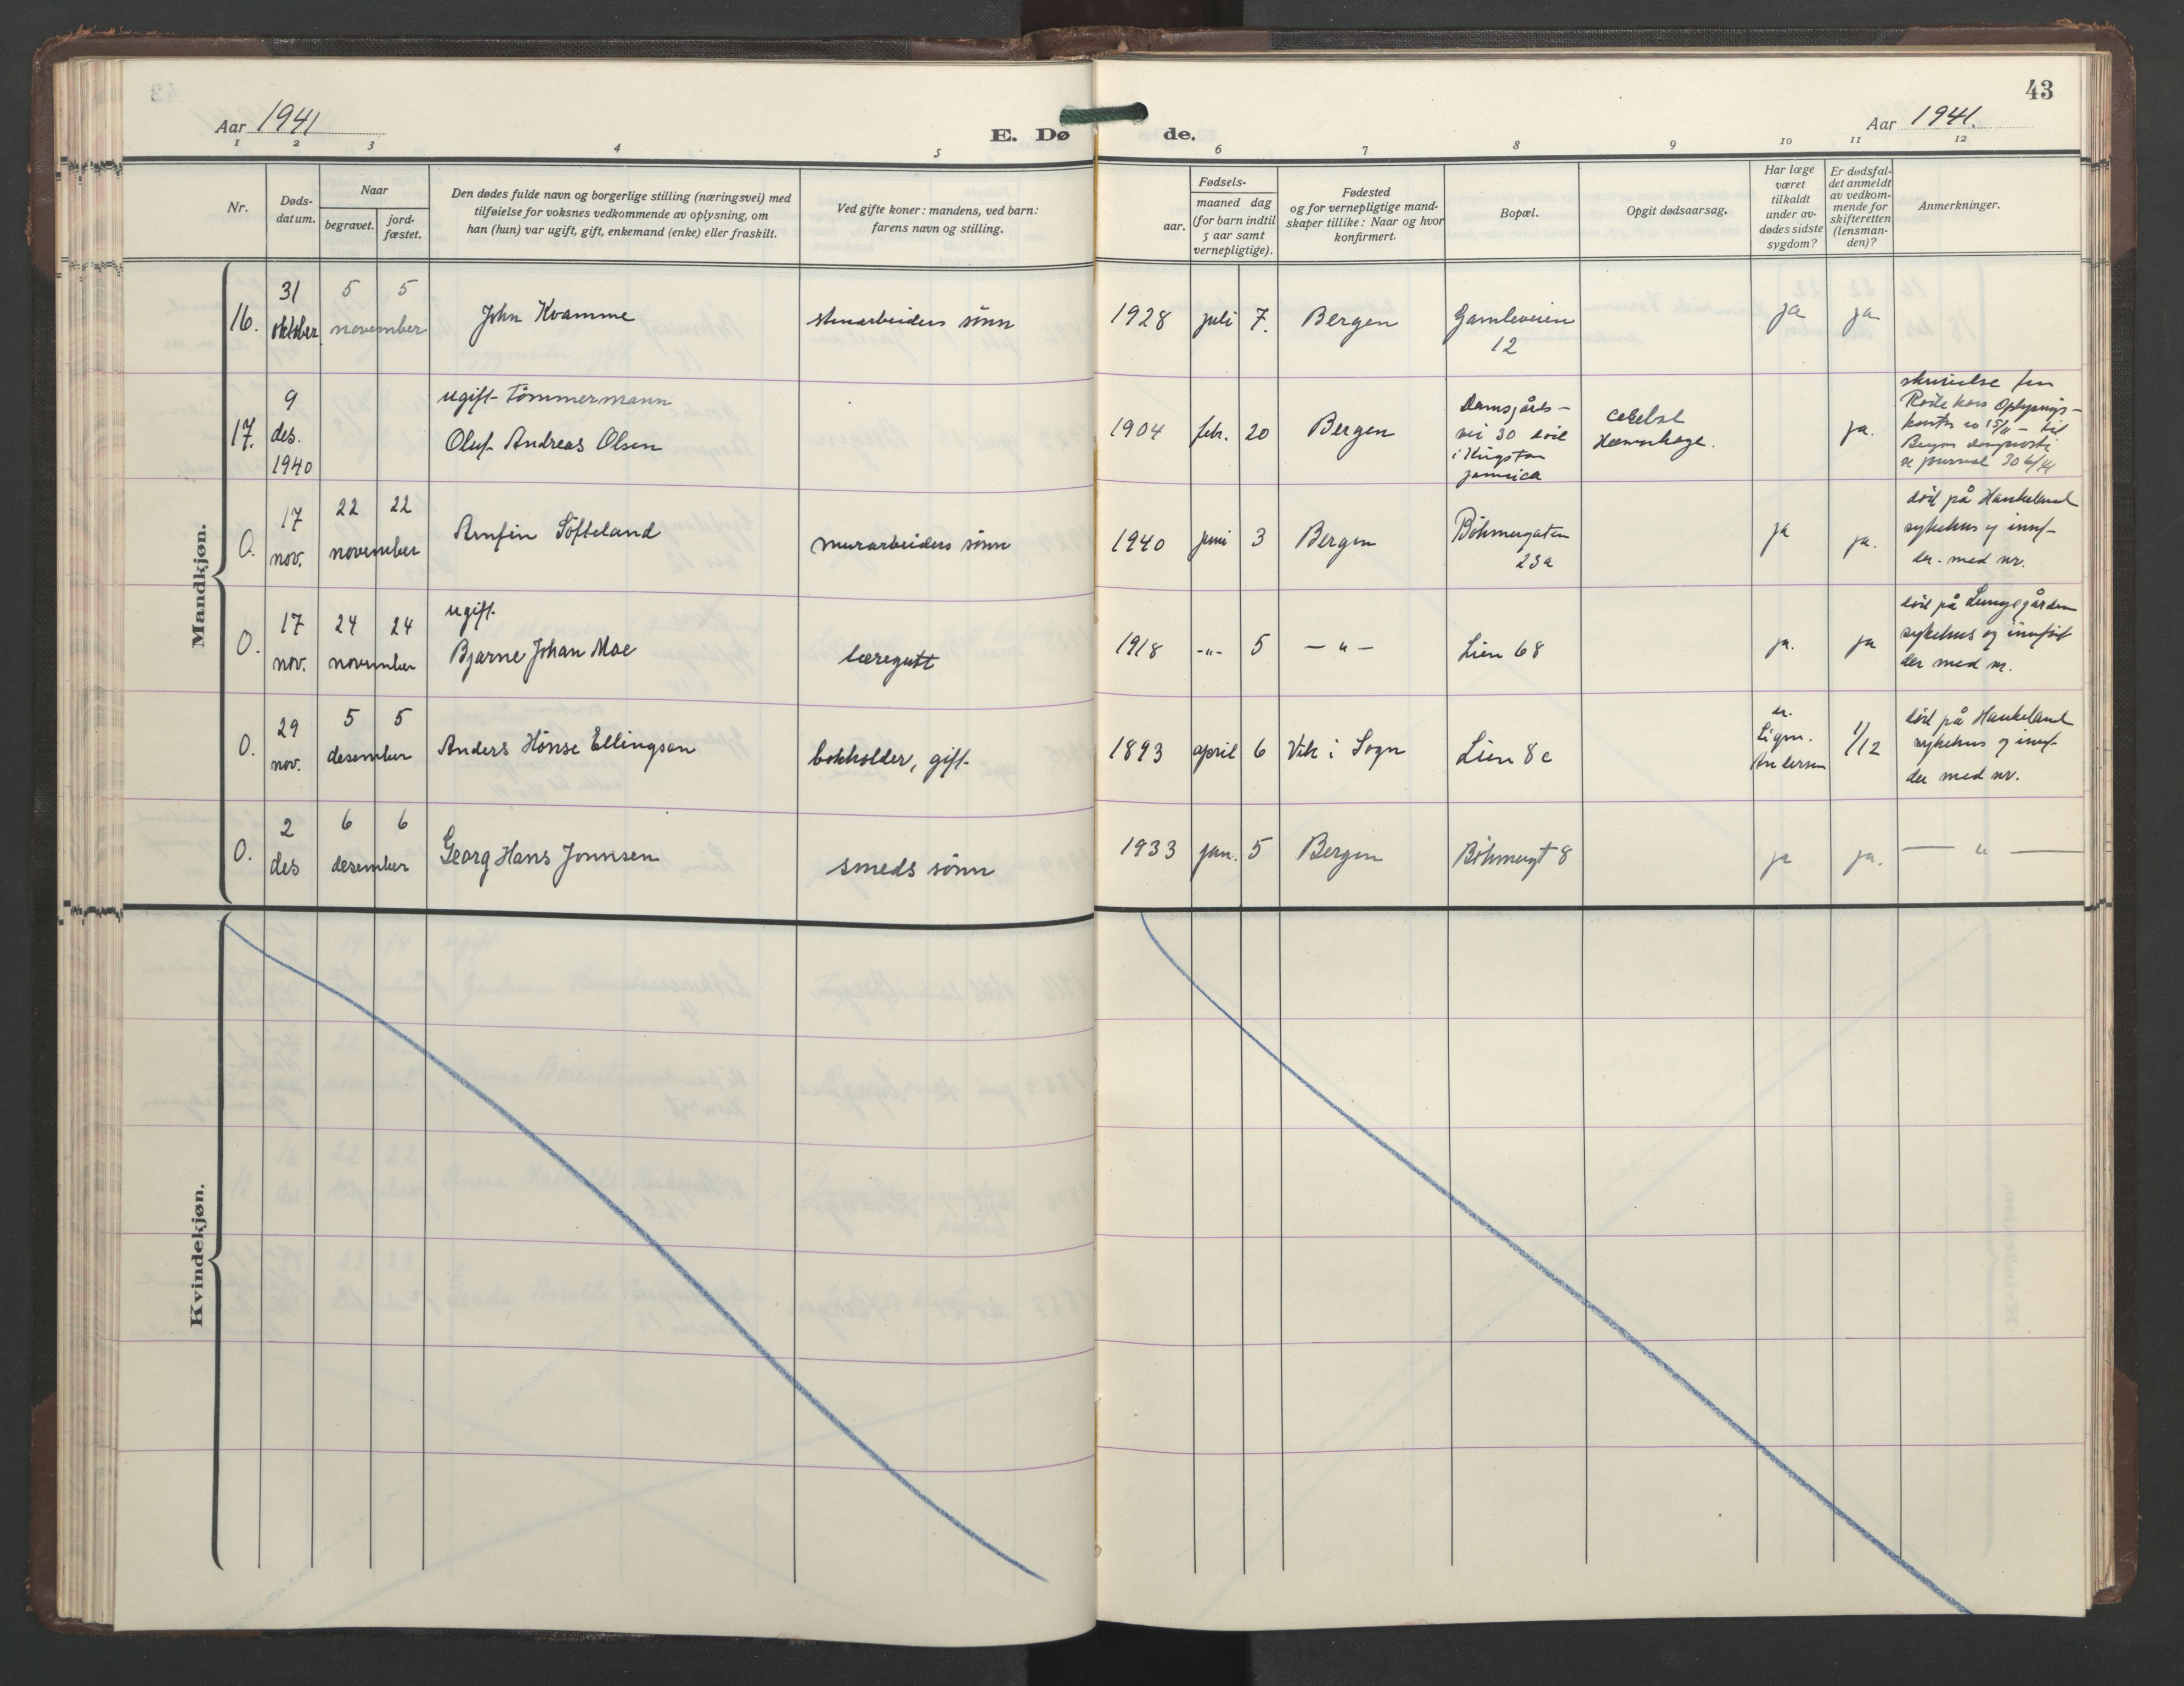 43
Aar 1941
E. Døde.
Aar 1941.
1 2 3 4 5 6 7 8 9 10 11 12
Nr.
Døds-
datum.
Naar
begravet.
jord-
fæstet.
Den dødes fulde navn og borgerlige stilling (næringsvei) med
tilføielse for voksnes vedkommende av oplysning, om
han (hun) var ugift, gift, enkemand (enke) eller fraskilt.
Ved gifte koner: mandens, ved barn:
farens navn og stilling.
Fødsels-
aar.
maaned dag
(for barn indtil
5 aar samt
vernepligtige).
Fødested
og for vernepligtige mand-
skaper tillike: Naar og hvor
konfirmert.
Bopæl.
Opgit dødsaarsag.
Har læge
været
tilkaldt
under av-
dødes sidste
sygdom?
Er dødsfal-
det anmeldt
av vedkom-
mende for
skifteretten
(lensman-
den)?
Anmerkninger.
Mandkjøn.
16.
31
oktober
5 5
november
John Kvamme
stenarbeiders sönn
1928 juli 7.
Bergen
Gamleveien
12
ja
ja
17.
9
des.
1940
ugift- Tömmermann
Oluf Andreas Olsen
1904 febr. 20
Bergen
Damsgårds-
vei 30 död
i Kingston
jamaica
cerebral
Hæmorrhage.
ja.
skrivelse fra
Röde kors Oplysnings-
til
Bergen
journal
0.
17
nov.
22 22
november
Arnfin Söfteland
murarbeiders sönn
1940 juni 3
Bergen
Böhmergaten
23a
ja
ja.
död på Haukeland
sykehus og innf-
der. med nr.
0.
17
nov.
24 24
november
ugift.
Bjarne Johan Moe
læregutt
1918 -"- 5
- " -
Lien 68
ja.
ja
död på Lungegården
sykehus og innfört
der med nr.
0.
29
nov.
5 5
desember
Anders Hönse Ellingsen
bokholder, gift-
1893 april 6
Vik i Sogn
Lien 8c
dr.
Sigm.
Andersen
1/12
död på Haukeland
sykehus og innf-
der med nr.
0.
2
des
6 6
desember
Georg Hans Jonnsen
smeds sönn
1933 jan. 5
Bergen
Böhmergt 8
ja
ja.
— " —
Kvindekjøn.